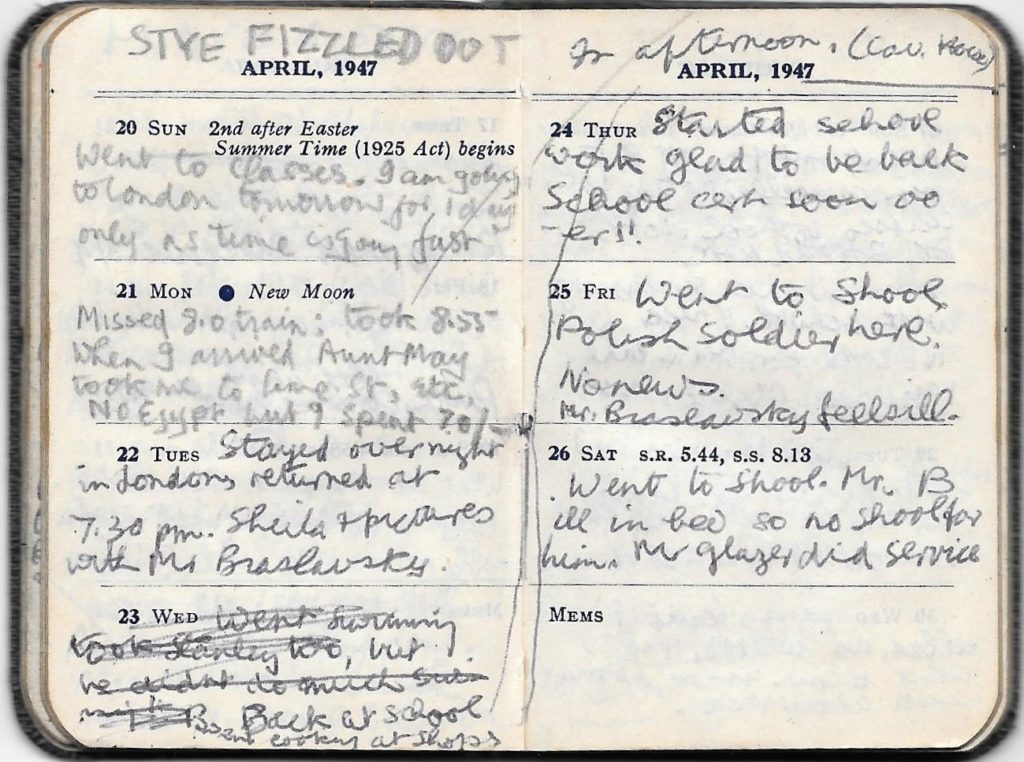 STYE FIZZLED OUT
APRIL, 1947
20 SUN 2nd after Easter
Summer Time (1925 Act) begins
Went to Classes. I am going
to London tomorrow for 1 day
only as time is going fast
21 MON New Moon
Missed 8.0 train: took 8.55
When I arrived Aunt May
took me to Lime St, etc,
No Egypt but I spent 20/-
22 TUES Stayed overnight
in London, returned at
7.30 pm. Sheila + pictures
with Mr Braslavsky.
23 WED Went swimming
took Stanley too, but
he didn't do much
B. Back at School
cooking at shops
In afternoon. (Cav. House)
APRIL, 1947
24 THUR Started school
work glad to be back
School cert soon oo
-er!!
25 FRI Went to Shool,
Polish Soldier here.
No news.
Mr. Braslavsky feels ill.
26 SAT S.R. 5.44, S.S. 8.13
Went to Shool. Mr. B
ill in bed so no shool for
him. Mr glazer did service
MEMS